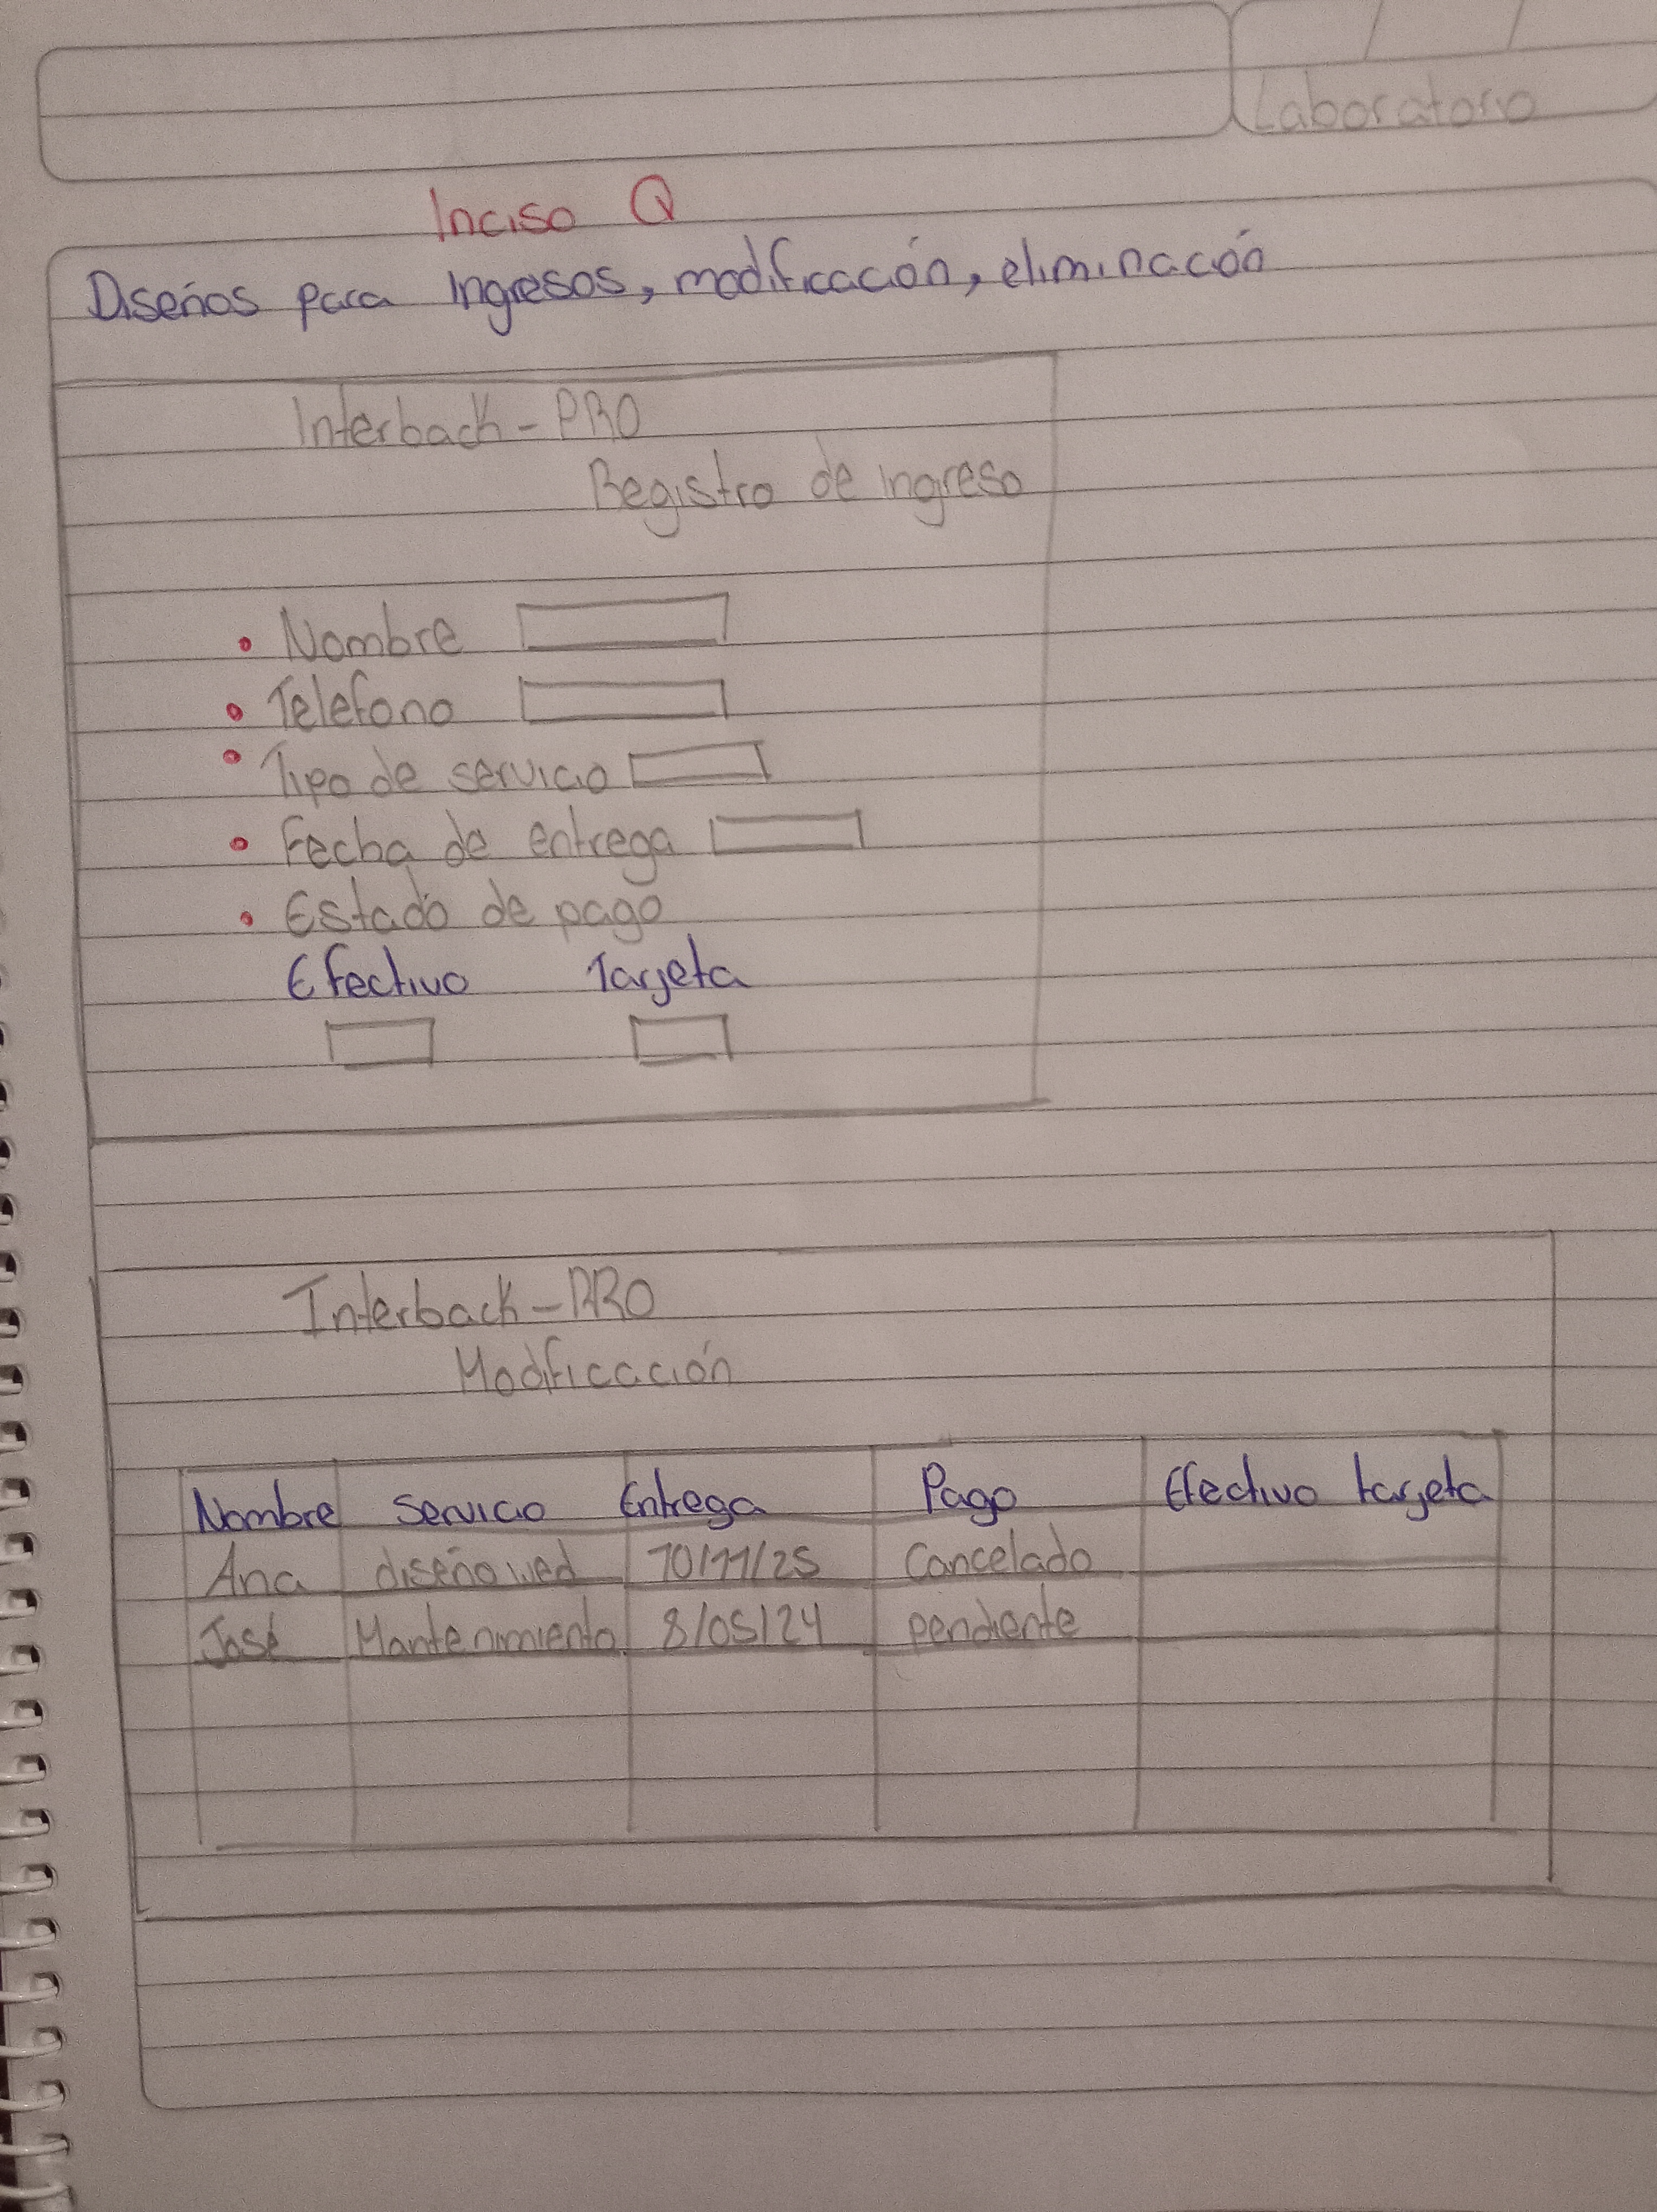 Laboratorio
Inciso Q
Diseños para Ingresos, modificación, eliminación
Interback - PRO
Registro de ingreso
• Nombre
• Telefono
• Tipo de servicio
• Fecha de entrega
• Estado de pago
Efectivo Tarjeta
Interback - PRO
Modificación
Nombre servicio Entrega Pago Efectivo tarjeta
Ana diseño wed 10/11/25 Cancelado
José Mantenimiento 8/05/24 pendiente